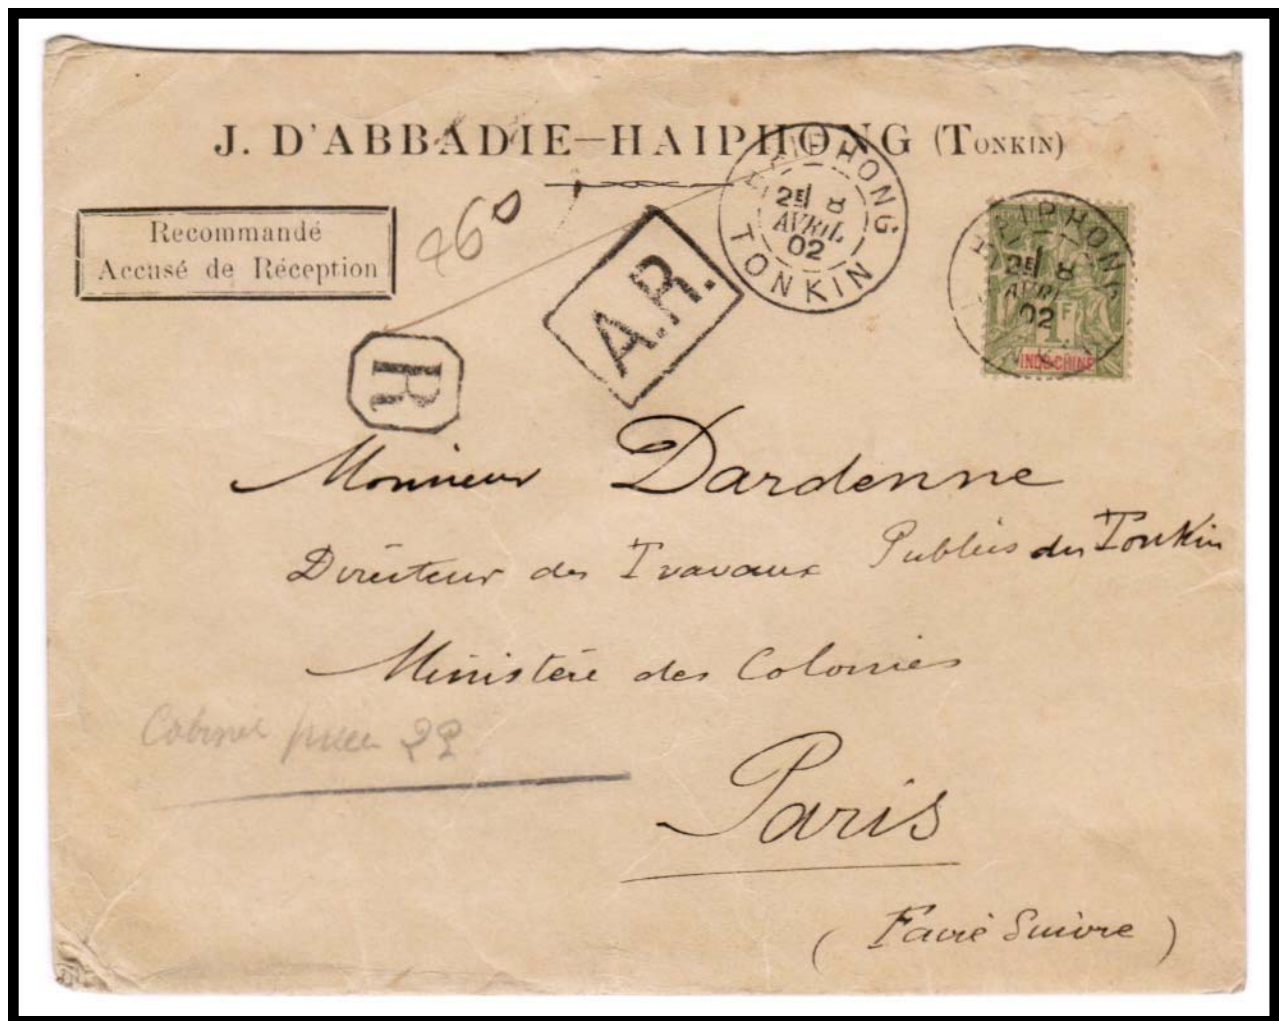 J. D'ABBADIE—HAIPHONG (TONKIN)
Recommandé
Accusé de Réception
460
R
A.R.
HAIPHONG
2E 8
AVRIL
02
TONKIN
HAIPHONG
2E 8
AVRIL
02
1 F
INDO-CHINE
Monsieur Dardenne
Directeur des Travaux Publics du Tonkin
Ministère des Colonies
Paris
(Faire Suivre)